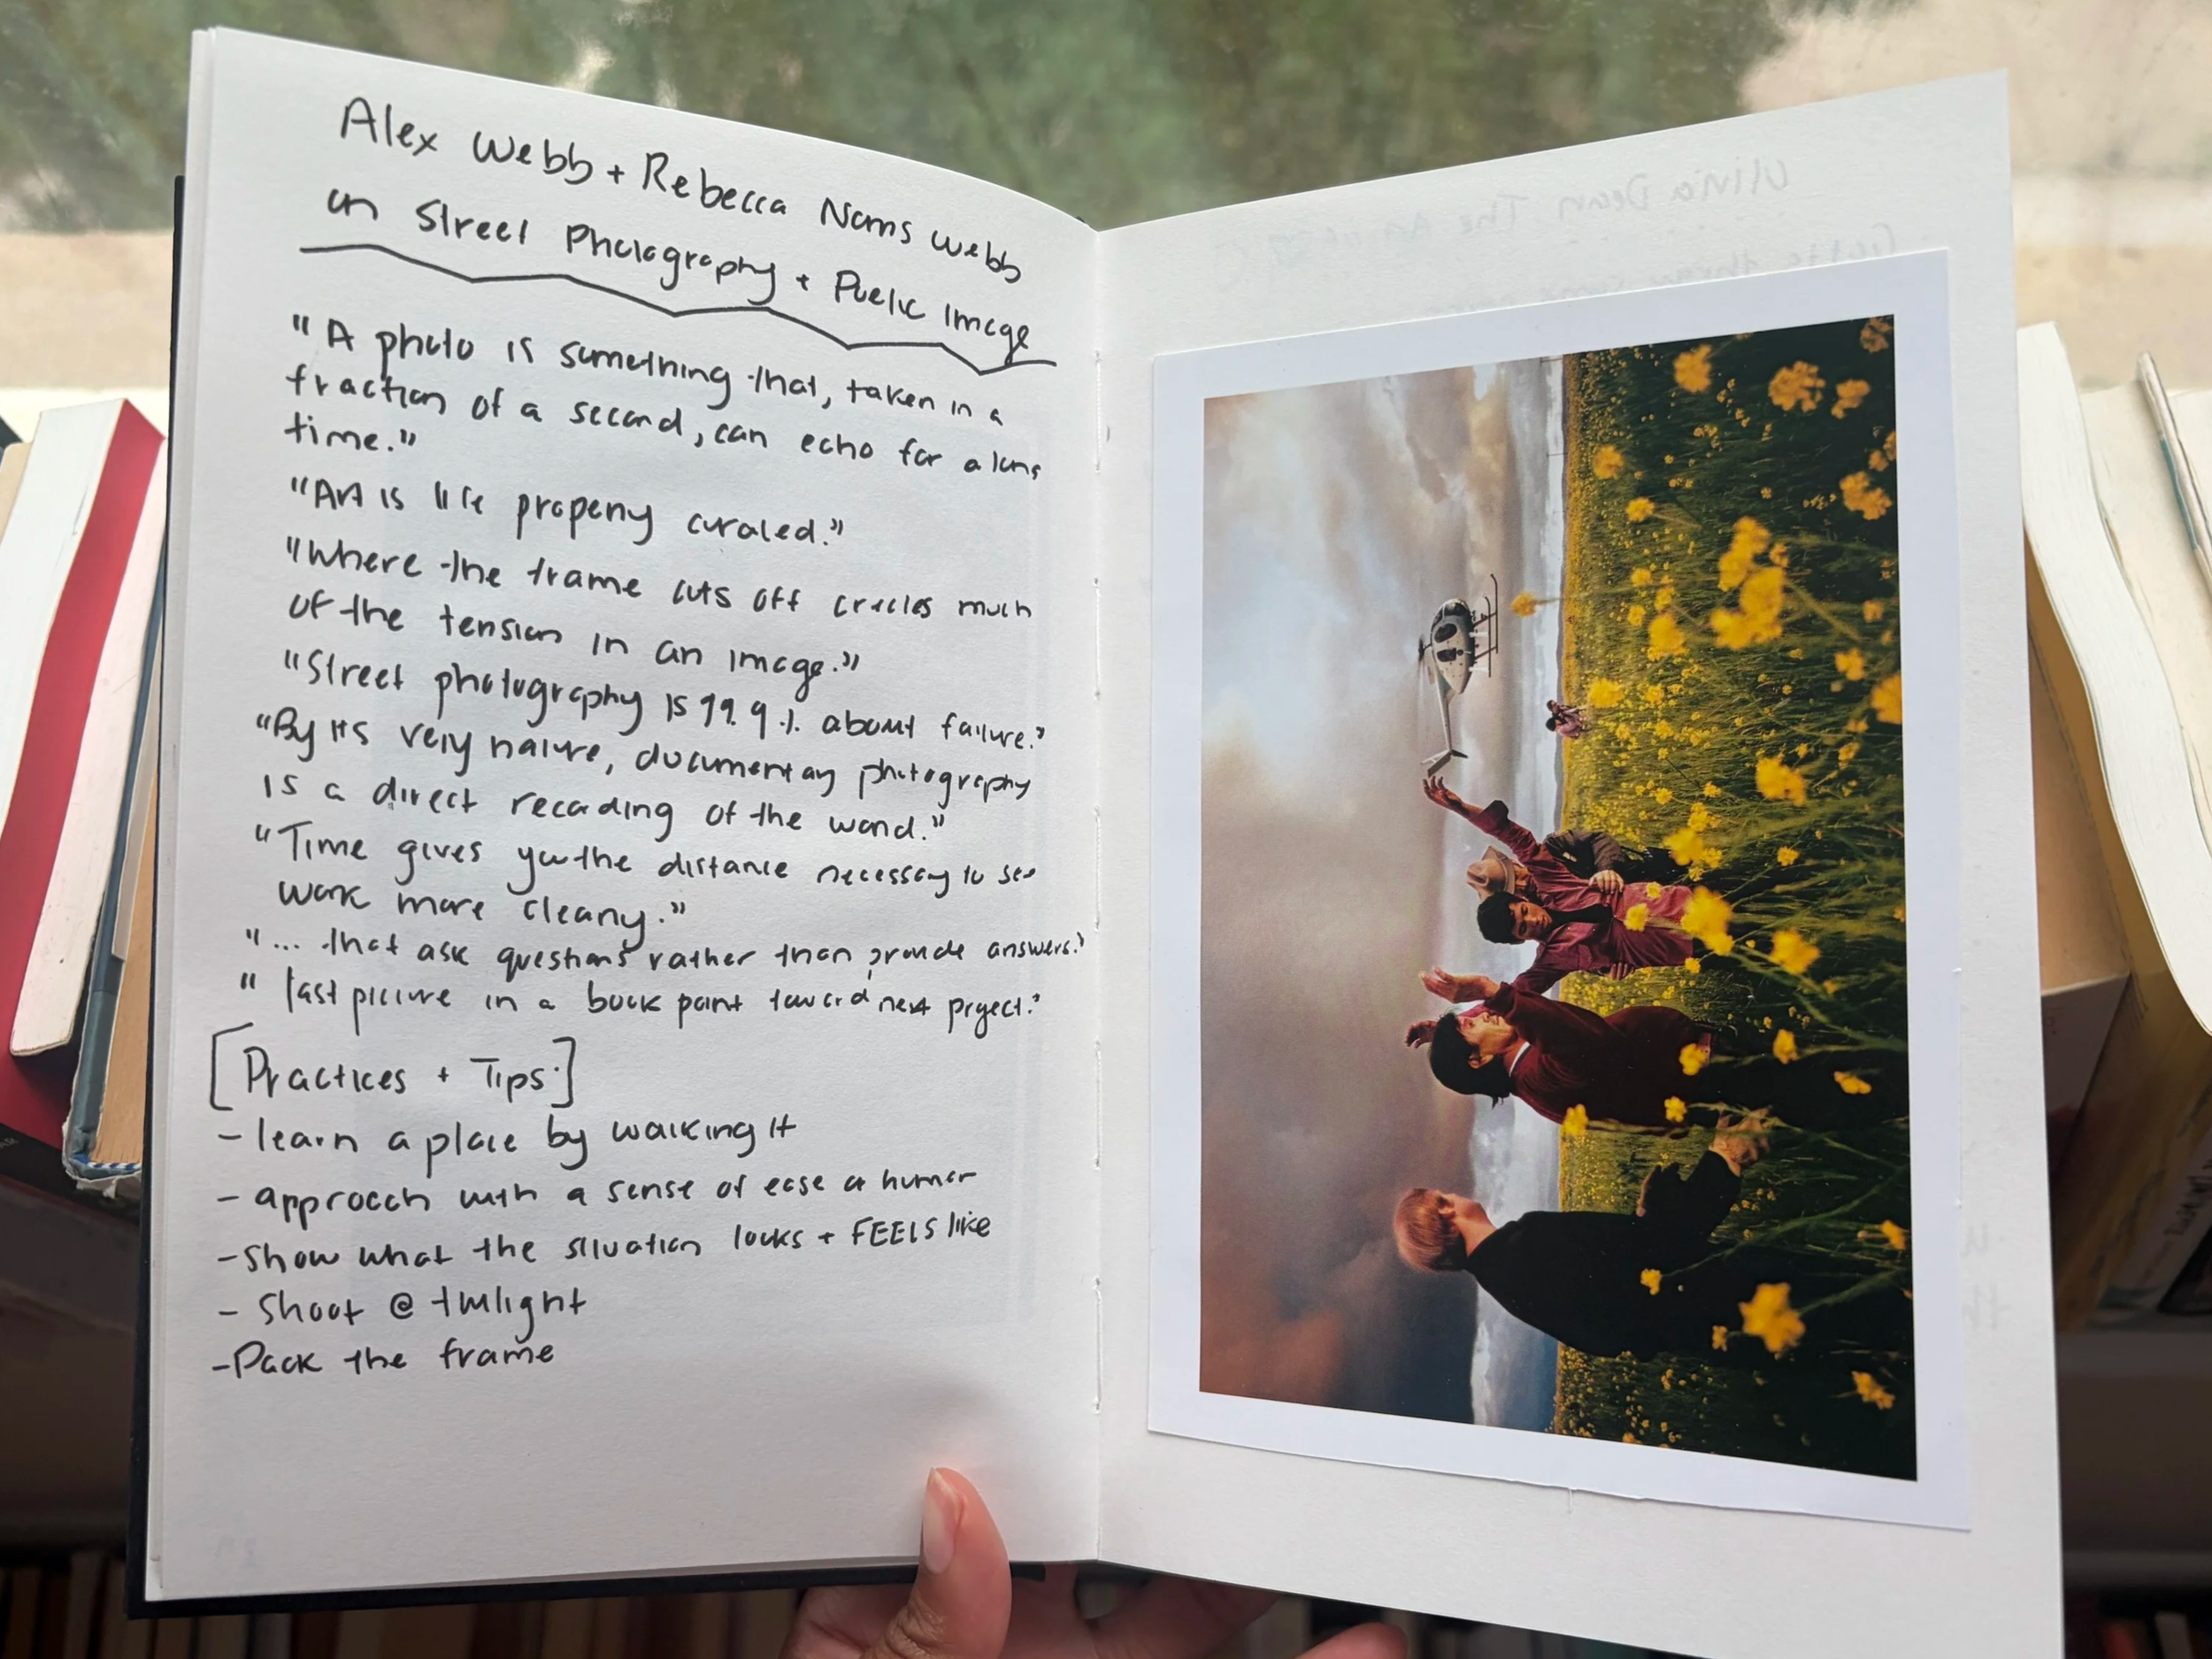 Alex Webb + Rebecca Norris Webb
on Street Photography + Public Image
"A photo is something that, taken in a
fraction of a second, can echo for a long
time."
"Art is life properly curated."
"Where the frame cuts off creates much
of the tension in an image."
"Street photography is 99.9%. about failure."
"By its very nature, documentary photography
is a direct recording of the world."
"Time gives you the distance necessary to see
work more clearly."
"... that ask questions rather than provide answers."
"last picture in a book point toward next project."
[Practices + Tips.]
- learn a place by walking it
- approach with a sense of ease or humor
- show what the situation looks + FEELS like
- Shoot @ twilight
- Pack the frame
Olivia Dean The Art of